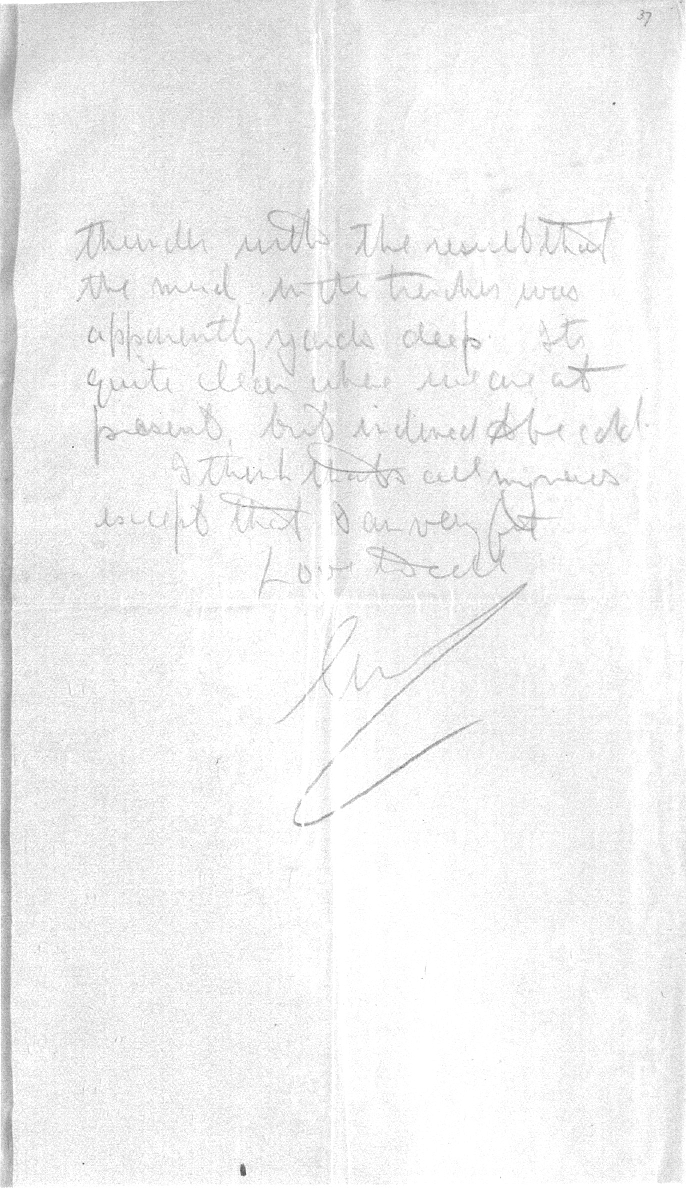 37
thunder with the result that
the mud in the trenches was
apparently yards deep. Its
quite clean where we are at
present, but indeed cold.
I think that's all my news
except that I am very fit
Love to all